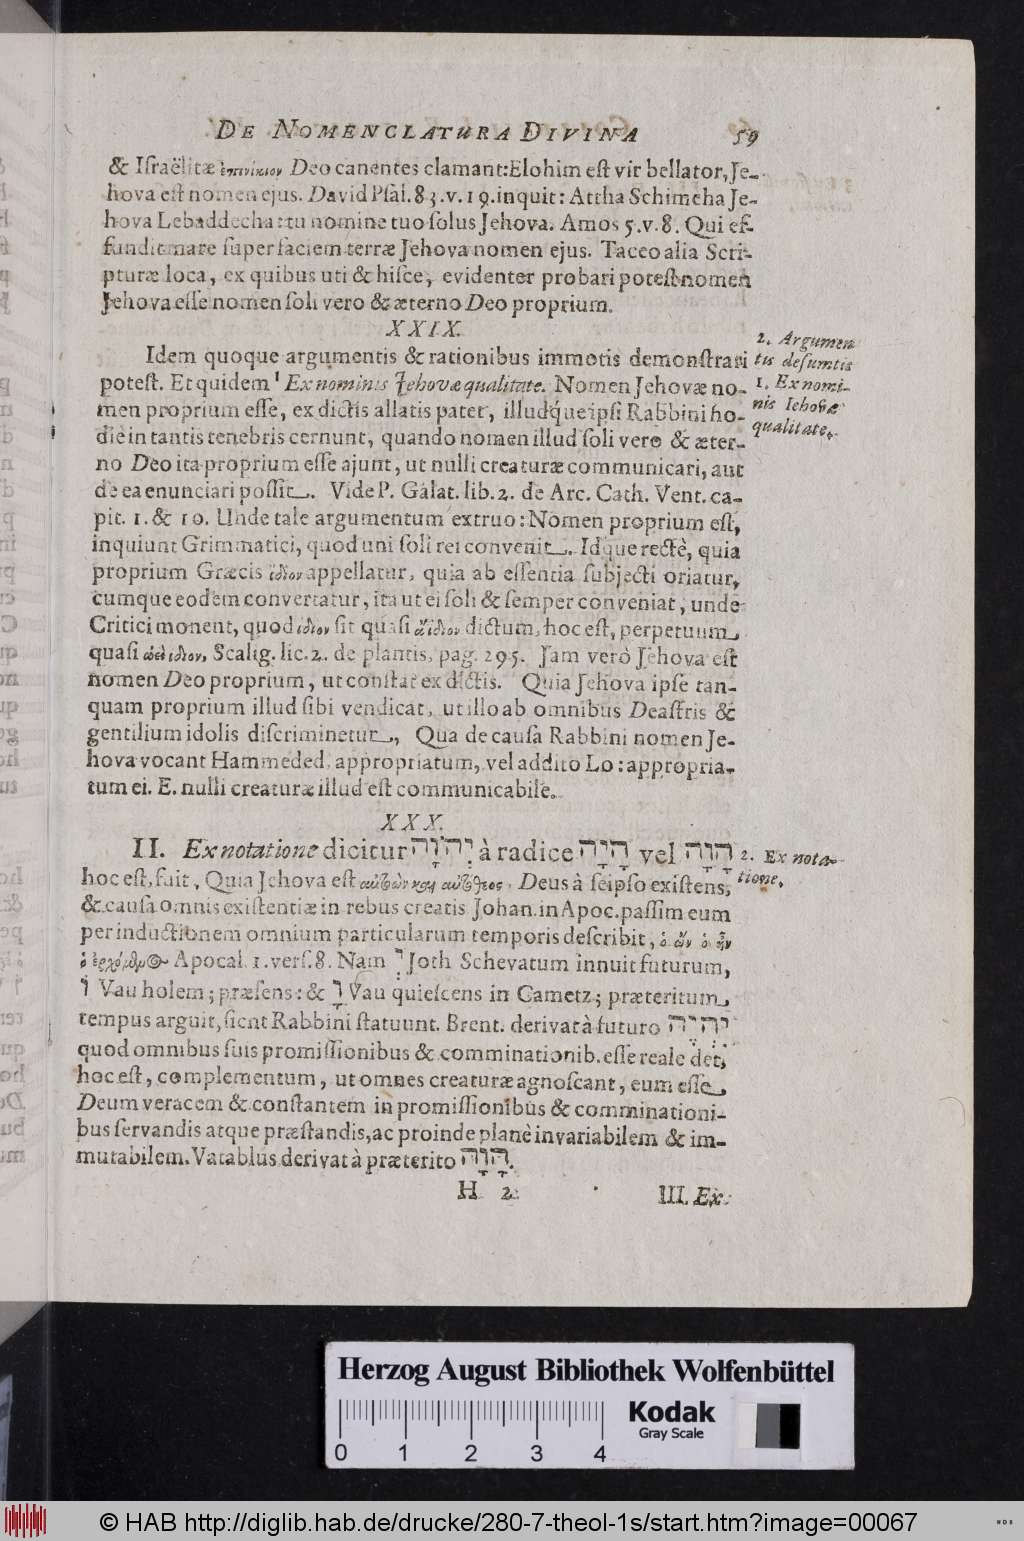 DE NOMENCLATURA DIVINA 59
& Iſraëlitæ ἐπινίκιον Deo canentes clamant: Elohim eſt vir bellator, Je-
hova eſt nomen ejus. David Pſal. 83. v. 19. inquit: Attha Schimcha Je-
hova Lebaddecha: tu nomine tuo ſolus Jehova. Amos 5. v. 8. Qui ef-
fundit mare ſuper faciem terræ Jehova nomen ejus. Taceo alia Scri-
pturæ loca, ex quibus uti & hiſce, evidenter probari poteſt nomen
Jehova eſſe nomen ſoli vero & æterno Deo proprium.
XXIX.
Idem quoque argumentis & rationibus immotis demonſtrari
poteſt. Et quidem 1 Ex nominis Jehovæ qualitate. Nomen Jehovæ no-
men proprium eſſe, ex dictis allatis patet, illudq́ue ipſi Rabbini ho-
die in tantis tenebris cernunt, quando nomen illud ſoli vero & æter-
no Deo ita proprium eſſe ajunt, ut nulli creaturæ communicari, aut
de ea enunciari poſſit. Vide P. Galat. lib. 2. de Arc. Cath. Vent. ca-
pit. 1. & 10. Unde tale argumentum extruo: Nomen proprium eſt,
inquiunt Grimmatici, quod uni ſoli rei convenit. Idque rectè, quia
proprium Græcis ἴδιον appellatur, quia ab eſſentia ſubjecti oriatur,
cumque eodem convertatur, ita ut ei ſoli & ſemper conveniat, unde
Critici monent, quod ιδιον ſit quaſi ἀΐδιον dictum, hoc eſt, perpetuum,
quaſi ἀεὶ ιδιον, Scalig. lic. 2. de plantis, pag. 295. Jam verò Jehova eſt
nomen Deo proprium, ut conſtat ex dictis. Quia Jehova ipſe tan-
quam proprium illud ſibi vendicat, ut illo ab omnibus Deaſtris &
gentilium idolis diſcriminetur, Qua de cauſa Rabbini nomen Je-
hova vocant Hammeded, appropriatum, vel addito Lo: appropria-
tum ei. E. nulli creaturæ illud eſt communicabile.
XXX.
II. Ex notatione dicitur יְהֹוָה à radice הָיָה vel הָוָה
hoc eſt, fuit, Quia Jehova eſt αὐτοὼν καὶ αὐτόθεος, Deus à ſeipſo exiſtens,
& cauſa omnis exiſtentiæ in rebus creatis Johan. in Apoc. paſſim eum
per inductionem omnium particularum temporis deſcribit, ὁ ὢν ὁ ἦν
ὁ ἐρχόμενος Apocal. 1. verſ. 8. Nam יְ Joth Schevatum innuit futurum,
וֹ Vau holem; præſens: & וָ Vau quieſcens in Cametz; præteritum
tempus arguit, ſicut Rabbini ſtatuunt. Brent. derivat à futuro יִהְיֶה
quod omnibus ſuis promiſſionibus & comminationib. eſſe reale det,
hoc eſt, complementum, ut omnes creaturæ agnoſcant, eum eſſe
Deum veracem & conſtantem in promiſſionibus & comminationi-
bus ſervandis atque præſtandis, ac proinde planè invariabilem & im-
mutabilem. Vatablus derivat à præterito הָוָה.
H 2 III. Ex
2. Argumen
tis deſumtis
1. Ex nomi-
nis Jehovæ
qualitate.
2. Ex nota-
tione.
Herzog August Bibliothek Wolfenbüttel
0 1 2 3 4
Kodak
Gray Scale
© HAB http://diglib.hab.de/drucke/280-7-theol-1s/start.htm?image=00067